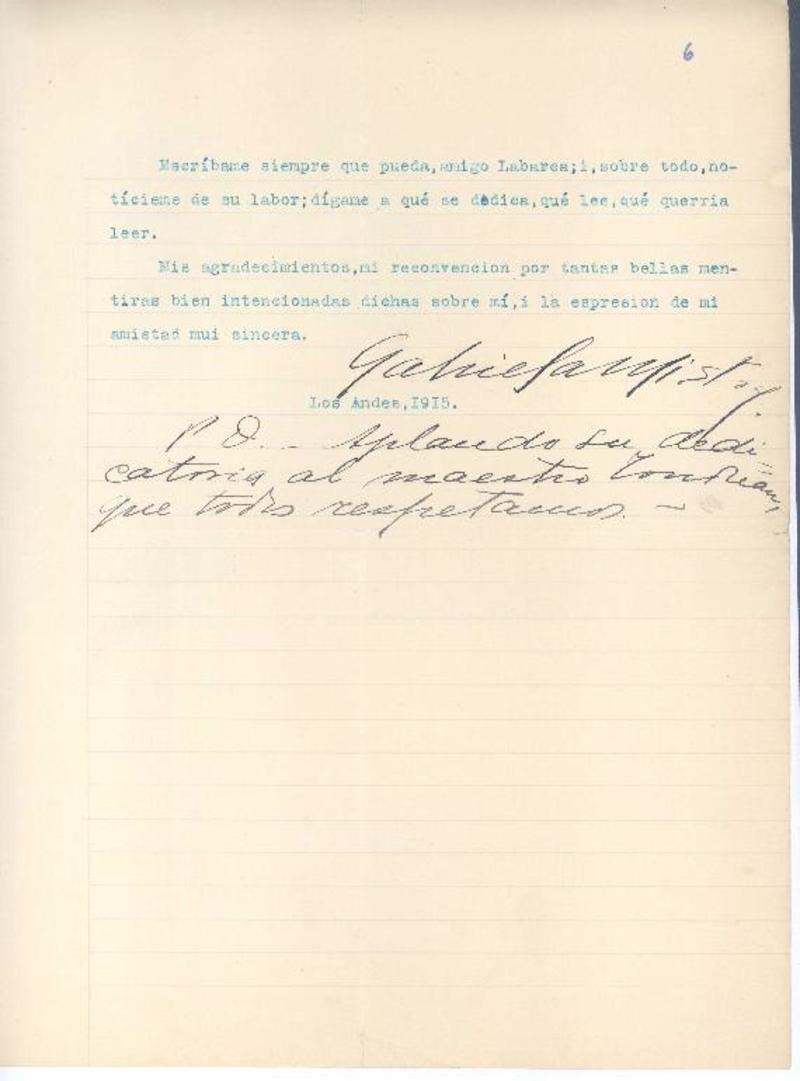 6
Escríbame siempre que pueda,amigo Labarca;i,sobre todo,no-
tícieme de su labor;dígame a qué se dedica,qué lee,qué querria
leer.
Mis agradecimientos,mi reconvencion por tantas bellas men-
tiras bien intencionadas dichas sobre mí,i la espresion de mi
amistad mui sincera.
Gabriela Mistral.
Los Andes,1915.
P D. - Aplaudo su dedi
catoria al maestro
que todos respetamos. -